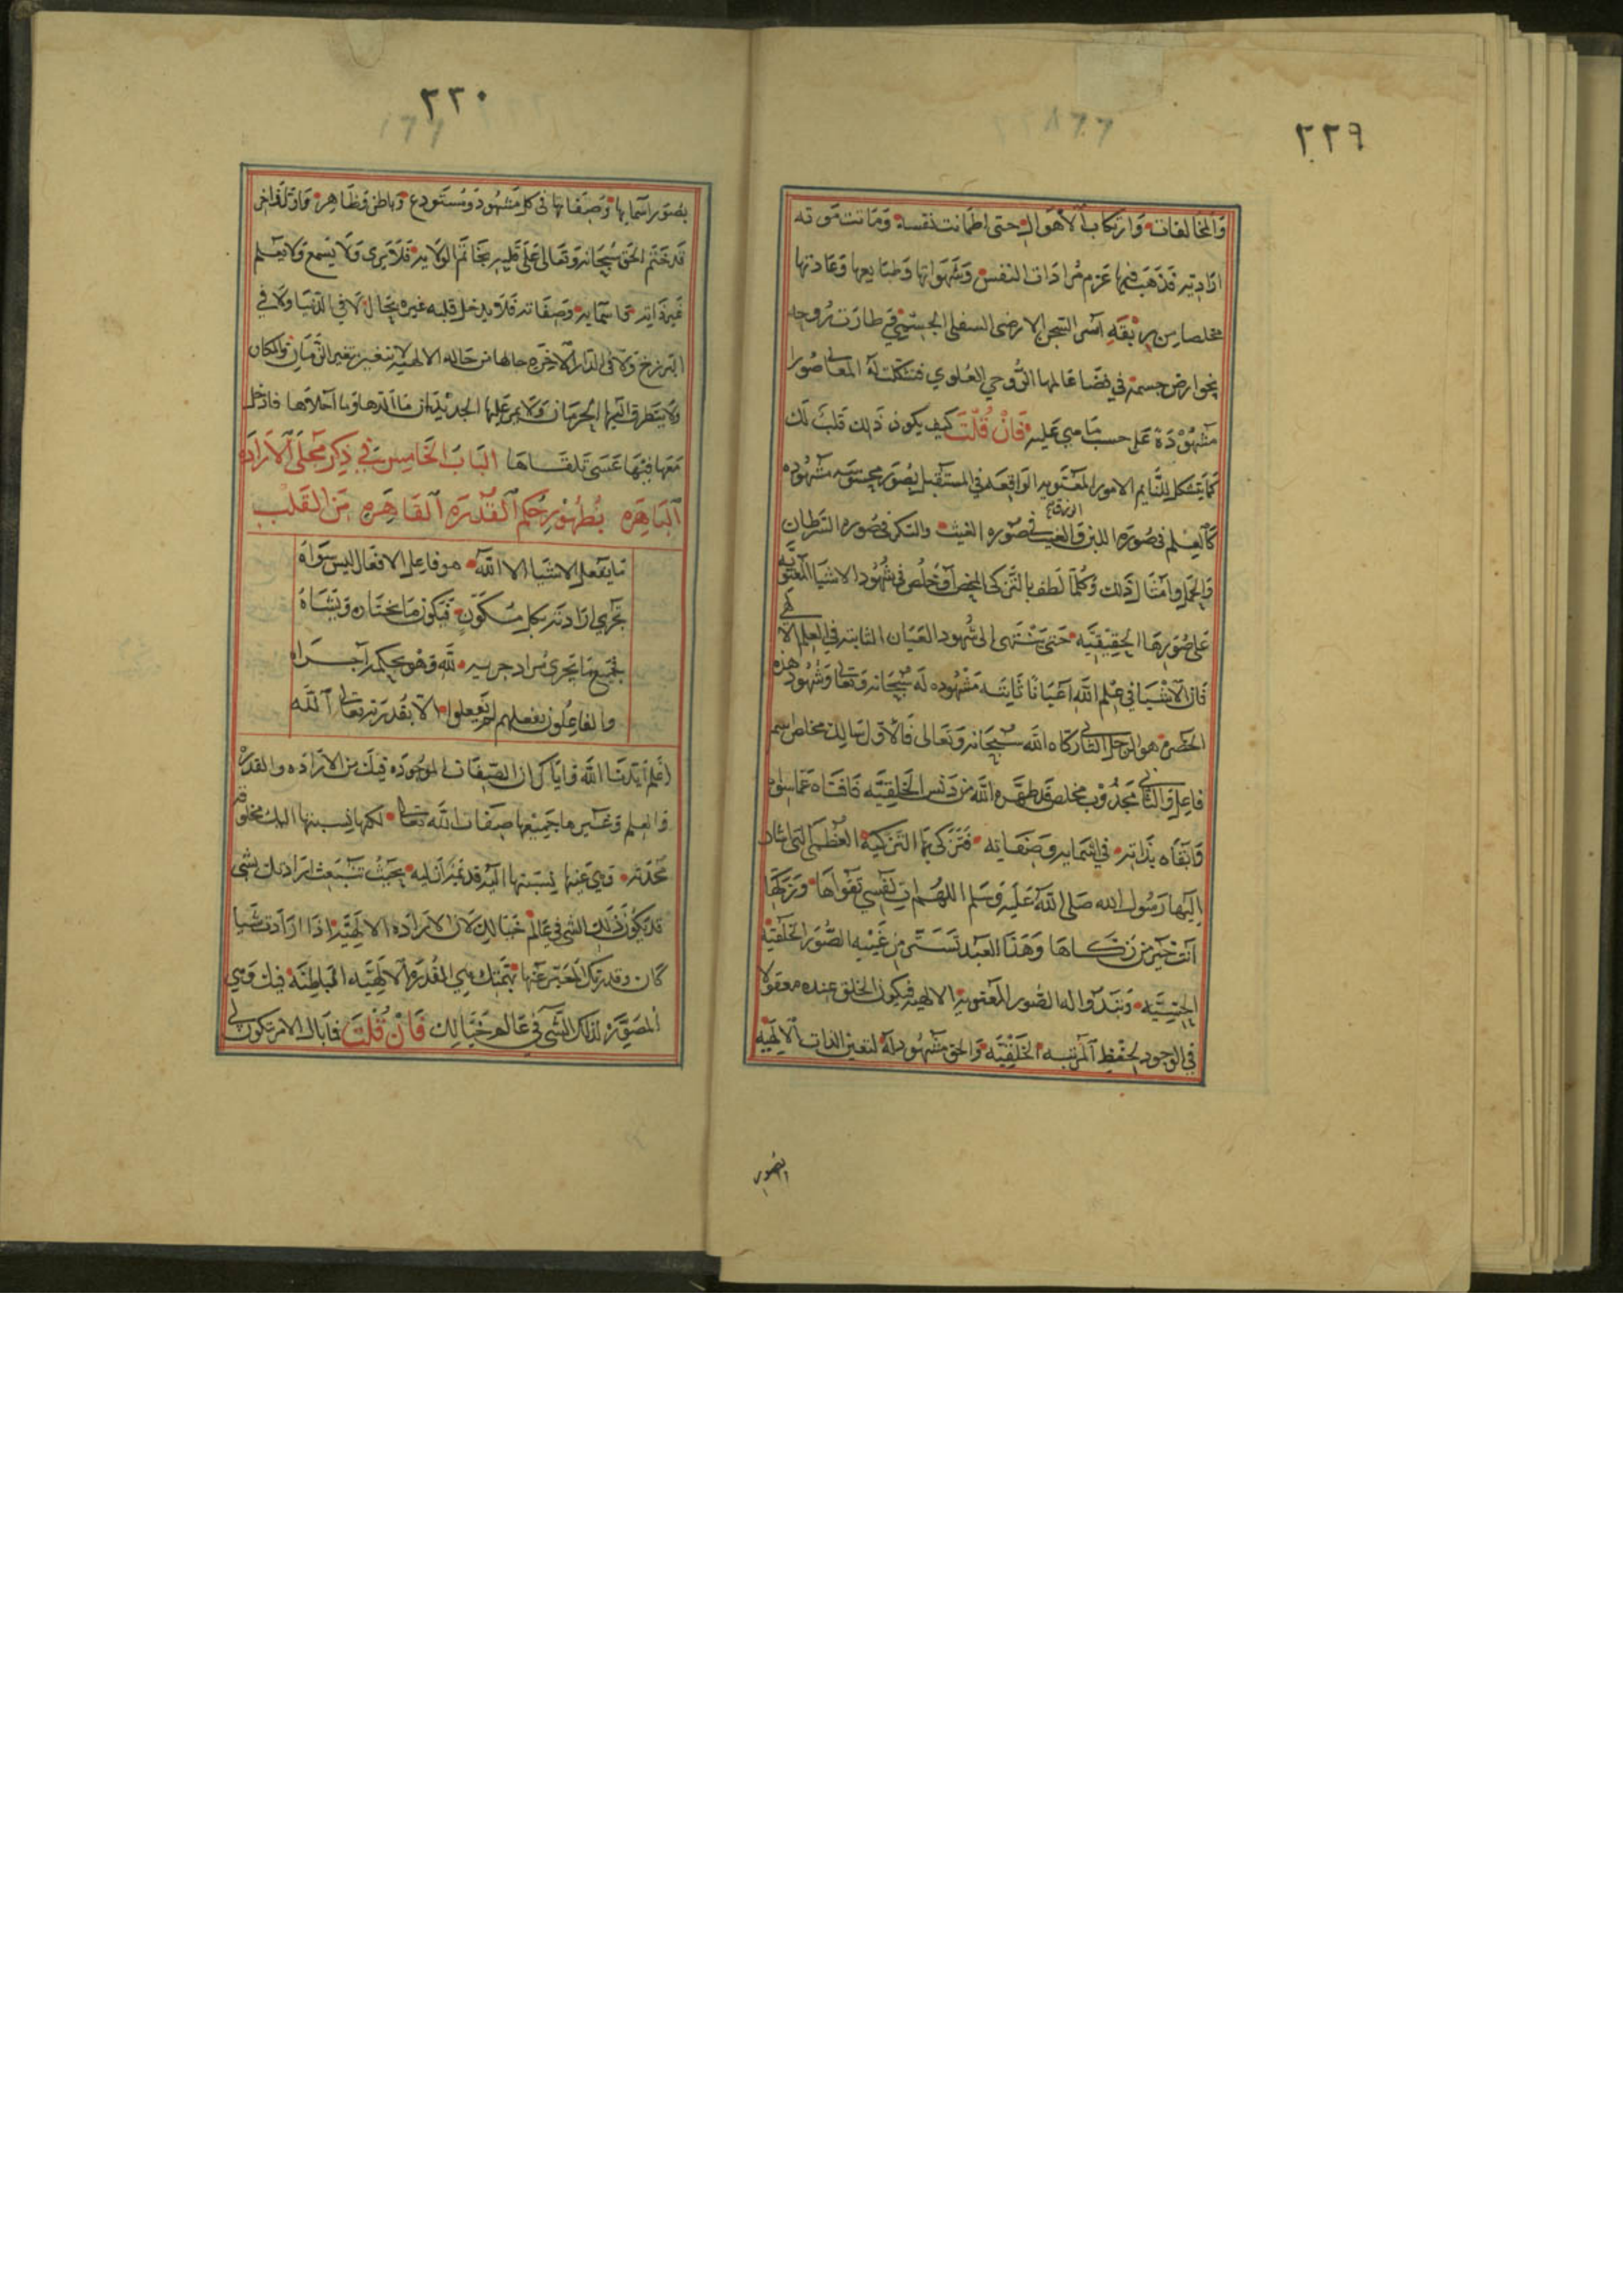 ٢٢٩
وَالمخَالفات وَارتكاب الأهوال حتى اطمانت نفسه وَمَاتت مَوته
ارَادِيّه فذهَبَ فيها عَزم مُرادَات النفس وَشهَواتها وَطبَايعها وَعَادتها
مخلصا من رِبْقَةِ اسْر السّجن الارضى السفلى الجسمي طارَت رُوحه
فى فضَا عَالمها الرُّوحي العُلوي فتشكلت لهُ المعَانى صُوَرا
مَشْهُوْدَةً عَلى حسب مَا هي عَليه فَانْ قُلتَ كيف يكون ذَلك قلتُ لك
كمَا يتشكل للنَّايم الامور المَعْنَويه الوَاقعَه فى المستقبل بصُوَر محسُوسَه مشهُوده
كَالعِلم فى صُورَة اللبن وَالغيث فى صُوره الغيث والسكر فى صُوره السَّرطان
وَالجمل وامثال ذَلك وَكلمَا لطف بالتَّزكى المحض وَخلُص فى شهُود الاشيَا المعنَويّه
عَلى صُوَرِهَا الحَقِيْقِيَّه حَتى يَنْتَهى الى شُهود الاعيَان الثابته فى العِلم الالهى
فَان الاشْيَا في عِلم اللّه اعيَانًا ثَابتَه مَشْهُوده لَه سُبْحَانه وَتعَالى وَشُهُود هذه
الحَضره هو للرجل الثانى زكاه الله سُبْحَانه وَتعَالى فَالأوّل سَالك مخلص اسم
فاعِل وَالثاني مَجْذُوْب مخلص قد طهَّره اللّه من دَنَس الخَلقِيَّه فَافنَاه عَمّا سِواه
وَابقاه بذَاته في اسمايه وَصفَاته فَتَزكى بهَا التزكِيَة العُظمى التى اشار
إليها رَسُول الله صَلى اللّه عَليه وَسَلم اللهُم ات نَفْسِي تقوَاهَا وَزَكِّهَا
انت خَيْر مَن زكّاهَا وَهَذَا العَبد تَسَتَّرَ مِن غَيْبِه الصُّوَر الخَلقِيَّه
الحِسِّيَّه وَتبدوا له الصُّور المَعنويه الالهيه فيكون الخلق عنده معقولا
في الوجود لحفظ المَرتبَه الخَلْقِيَّه وَالحق مَشهُود لهُ لتعين الذات الالهيَّه
بصُوَر
٢٢٠
بصُوَر اسمايها وَصفاتها فى كل مَشْهُود وَمُستَودع وَباطن وَظَاهر وَاوّل وَاخِر
قد خَتم الحق سُبْحَانه وَتعَالى عَلى قلبه بخَاتم الولايه فَلا يَرى وَلا يسْمع وَلا يعلم
غَير ذَاته وَاسمايه وَصِفَاته فَلا يدخل قلبه غيره بحَال لا فى الدّنيَا وَلا في
البَرزخ وَلا فى الدّار الآخره حَالهَا من حَاله الالهيه لا تتغير بتغير الزّمَان وَالمكان
وَلا يتَطرق اليهَا الحِرمان وَلا يمر عَليهَا الجديدَان مَا الذهَا وَمَا احلاهَا فادخل
مَعهَا فيهَا عَسَى تلقَاهَا البَابُ الخَامِس في ذِكر مَجلَى الارَادَه
البَاهِرَه بظُهُوْر حُكم القُدْرَه القَاهِرَه مِن القَلب
مَا يفعل الاشيَا الا اللّه هو فاعل الافعَال ليسَ سِوَاهُ
تجَري ارَادته بكل مكَوَّن فَيكون مَا يختَاره وَيشاهُ
فجَميع مَا يجرى مُراد جريه للّه وَهو بحكمه اجرَاه
وَالفَاعِلون بفعلهم لم يَفعلوا الا بقُدرته تعَالى اللَّه
اعلم أيّدنَا اللّه وَايّاك ان الصّفَات الموجُوده فيك من الارَاده وَالقدره
وَالعِلم وَغيرها جَمِيعها صِفَات اللّه تعَالى لكنها نسبتها اليك مخلوقه
مُحدثه وَهِي عَينها بنسبتها اليه قديمَه ازَليه بحَيْثُ تنْبَعث ارَادتك بشَى
قد يكُون ذَلك الشي فى عَالم خيَالك لان الارَاده الالهيّه اذَا ارَادت شيَا
كَان وَقدرتك المعَبّر عَنها بهِمتك هِي القُدرَة الالهيَّه البَاطنَه فيك وَهي
المصَوِّرَه لذلك الشَّي في عَالم خَيَالك فَانْ قُلْتَ فمَا بَال الامر تكون لى